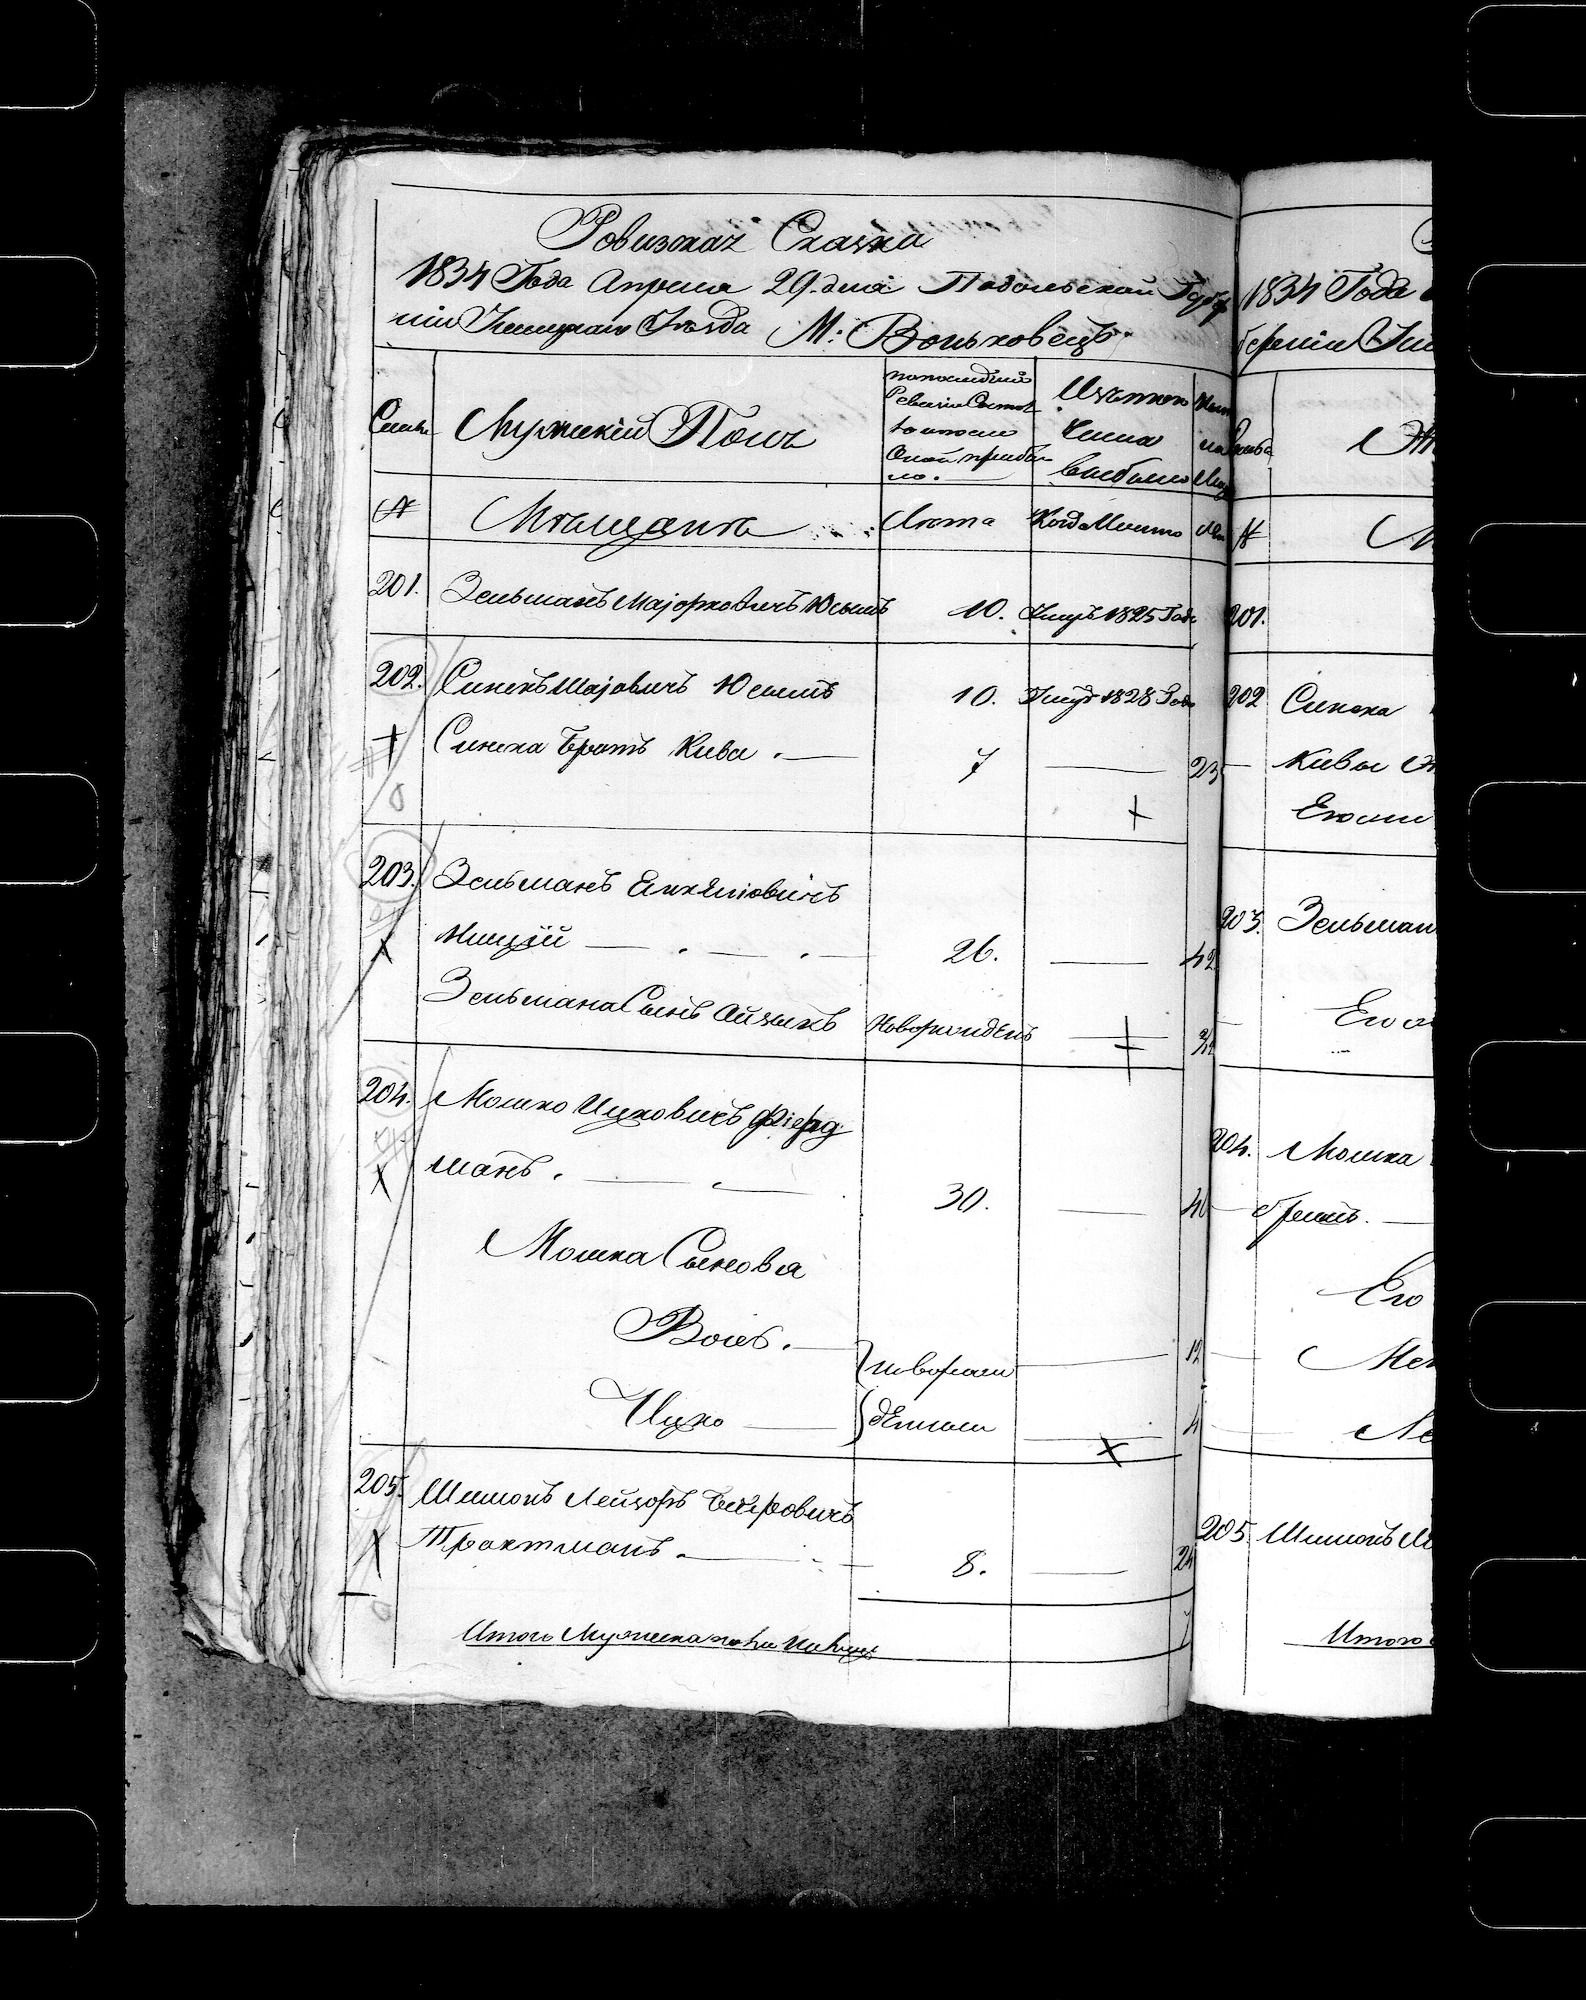 Ревизкая Сказка
1834 Года Апреля 29. дня Подольской Губер
ніи Ушицкаго Уѣзда М: Воньковецъ.
Семьи
Мужескій Полъ
По последней
Ревизіи Состоя
ло и после
Оной прибы
ло.
Изъ того
Числа
Выбыло
№
Мѣщанѣ
Лѣта
201.
Зельманъ Маіорковичъ Юсымъ
10.
Умеръ 1825 Года
202.
Синекъ Шаіовичъ Юсымъ
10.
Умеръ 1828 Года
Синека Братъ Кива.
7
23
203.
Зельманъ
Ницый
26.
42
Зельмана Сынъ Айзыкъ
Новорожденъ
204.
Мошко Ицковичъ Фіерд
манъ.
30.
46
Мошка Сыновья
12
Ицко
новорож
денные
4
205.
Шимонъ Лейзоръ Беѣровичъ
Трахтманъ.
8.
24
Итого Мужеска пола на лицо
7
1834 Года
201.
202
Синека
Кивы
203.
Зельман
204.
Мошка
Его
205
Шимонъ Ле
Итого